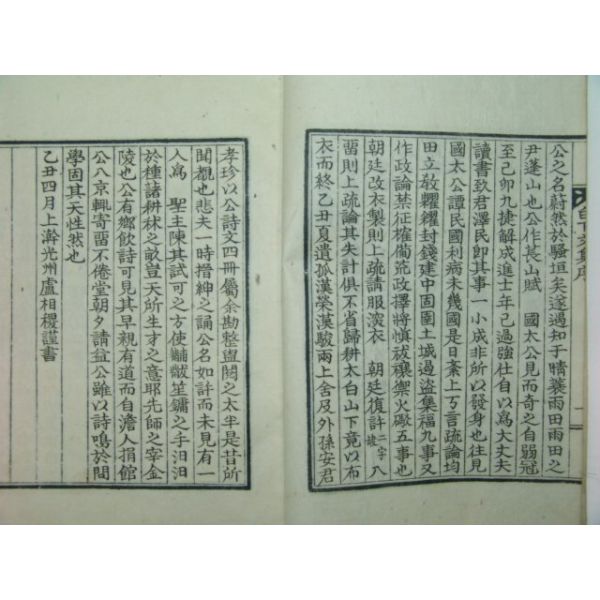 公之名蔚然於騷垣矣遂遇知于晴蓑雨田雨田之
尹蓬山也公作長山賦 國太公見而奇之自弱冠
至己卯九捷解成進士年已過強仕自以爲大丈夫
讀書致君澤民卽其事一小成非所以發身也往見
國太公譚民國利病未幾國是日紊上万言疏論均
田立敎糶糴封錢建中固圉土城過盜集福九事又
作政論禁征榷備荒政擇將愼祓禳禦火厰五事也
朝廷改衣製則上疏請服深衣 朝廷復許二字八
雷則上疏論其失計俱不省歸耕太白山下竟以布
衣而終乙丑夏遺孤漢榮漢駿兩上舍及外孫安君
孝珍以公詩文四冊屬余勘整盥閱之太半是昔所
聞覩也悲夫一時搢紳之誦公名如許而未見有一
人爲 聖主陳其試可之方使黼黻笙鏞之手汨汨
於種諸耕林之畝豈天所生才之意耶先師之宰金
陵也公有鄕飮詩可見其早親有道而自澹人捐館
公八京輒寄雷不倦堂朝夕請益公雖以詩鳴於間
學固其天性然也
乙丑四月上澣光州盧相稷謹書